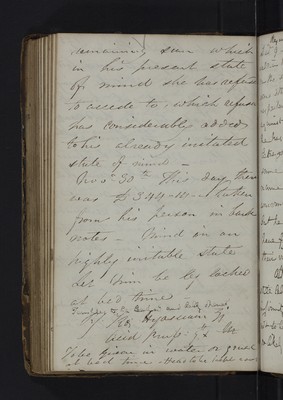 remaining sum which
in his present state
of mind she has refused
to accede to which refusal
has considerably added
to his already irritated
state of mind –
Nov 30th This day there
was £ 344-10- taken
from his person in bank
notes – Mind in an
highly irritable state
Let him be leg locked
at bed time
Hyosciam
acid
to be given in water or gruel
at bed time